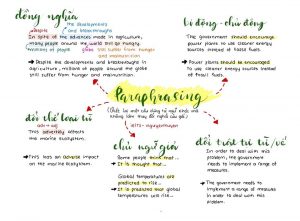 đồng nghĩa
despite the developments
and breakthroughs
In spite of the advances made in agriculture,
many people around the world still go hungry.
millions of people around the globe still suffer from hunger
and malnutrition
➤ Despite the developments and breakthroughs in
agriculture, millions of people around the globe
still suffer from hunger and malnutrition.
bị động - chủ động
The government should encourage
power plants to use cleaner energy sources
instead of fossil fuels.
➤ Power plants should be encouraged
to use cleaner energy sources instead
of fossil fuels.
Paraphrasing
(Viết lại một câu bằng từ ngữ khác mà
không làm thay đổi nghĩa câu gốc)
đổi chỗ loại từ
adv → adj
This adversely affects
the marine ecosystem.
➤ This has an adverse impact
on the marine ecosystem.
chủ ngữ giả
Some people think that...
➤ It is thought that...
Global temperatures are
predicted to rise...
➤ It is predicted that global
temperatures will rise...
đổi trật tự từ/vế
In order to deal with this
problem, the government
needs to implement a range of
measures.
➤ The government needs to
implement a range of measures
in order to deal with this
problem.